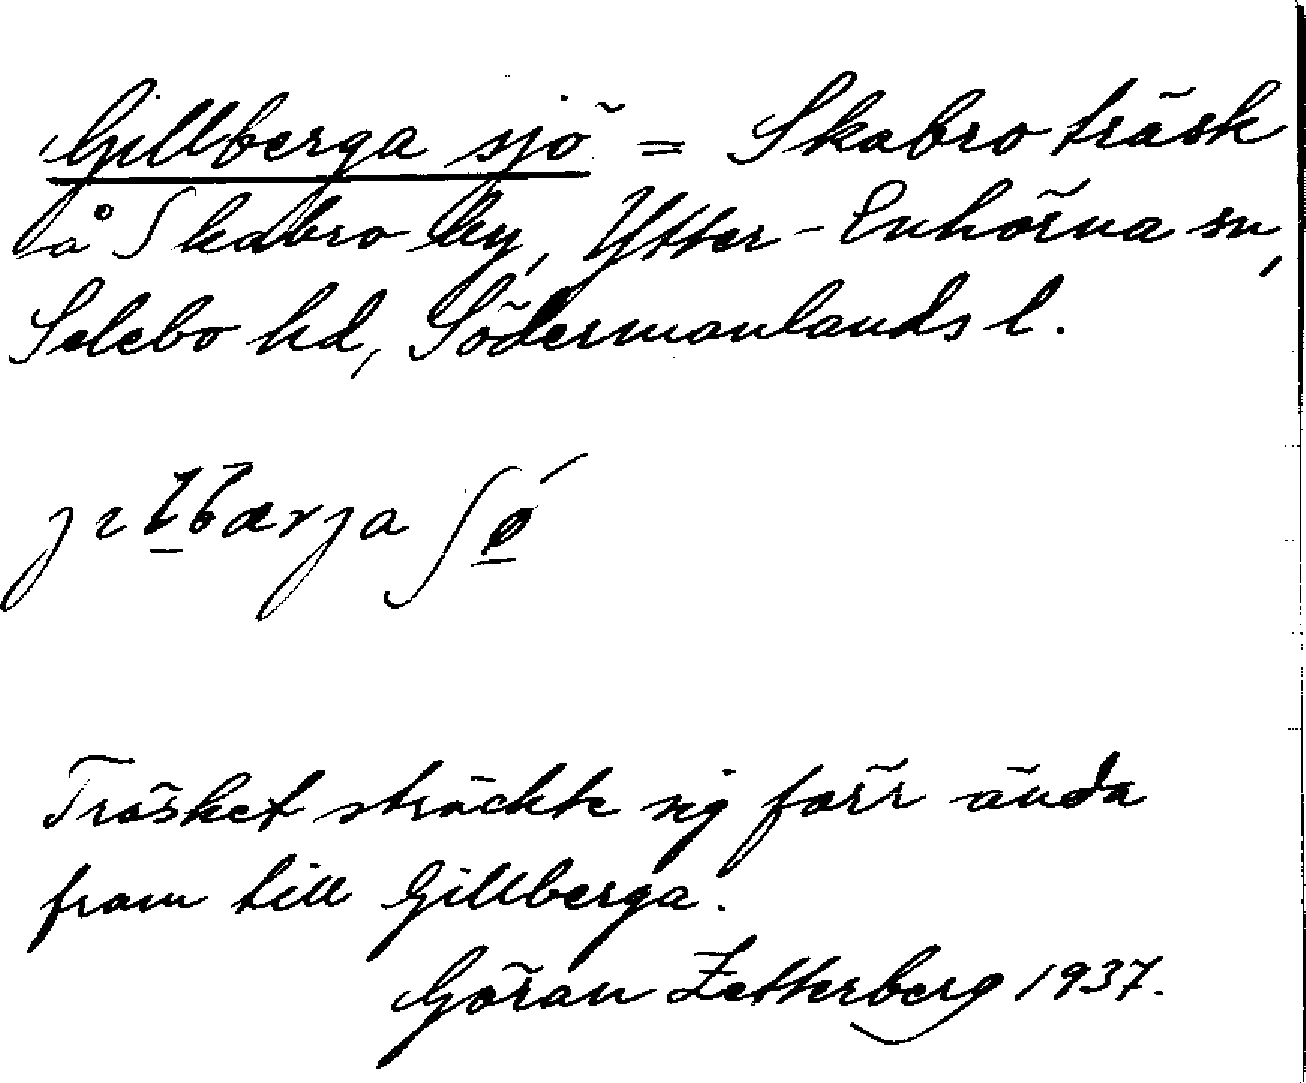 Gillberga sjö = Skabro träsk
å Skabro by, Ytter-Enhörna sn,
Selebo hd, Södermanlands l.
Träsket sträckte sig förr ända
fram till Gillberga.
Göran Zetterberg 1937.